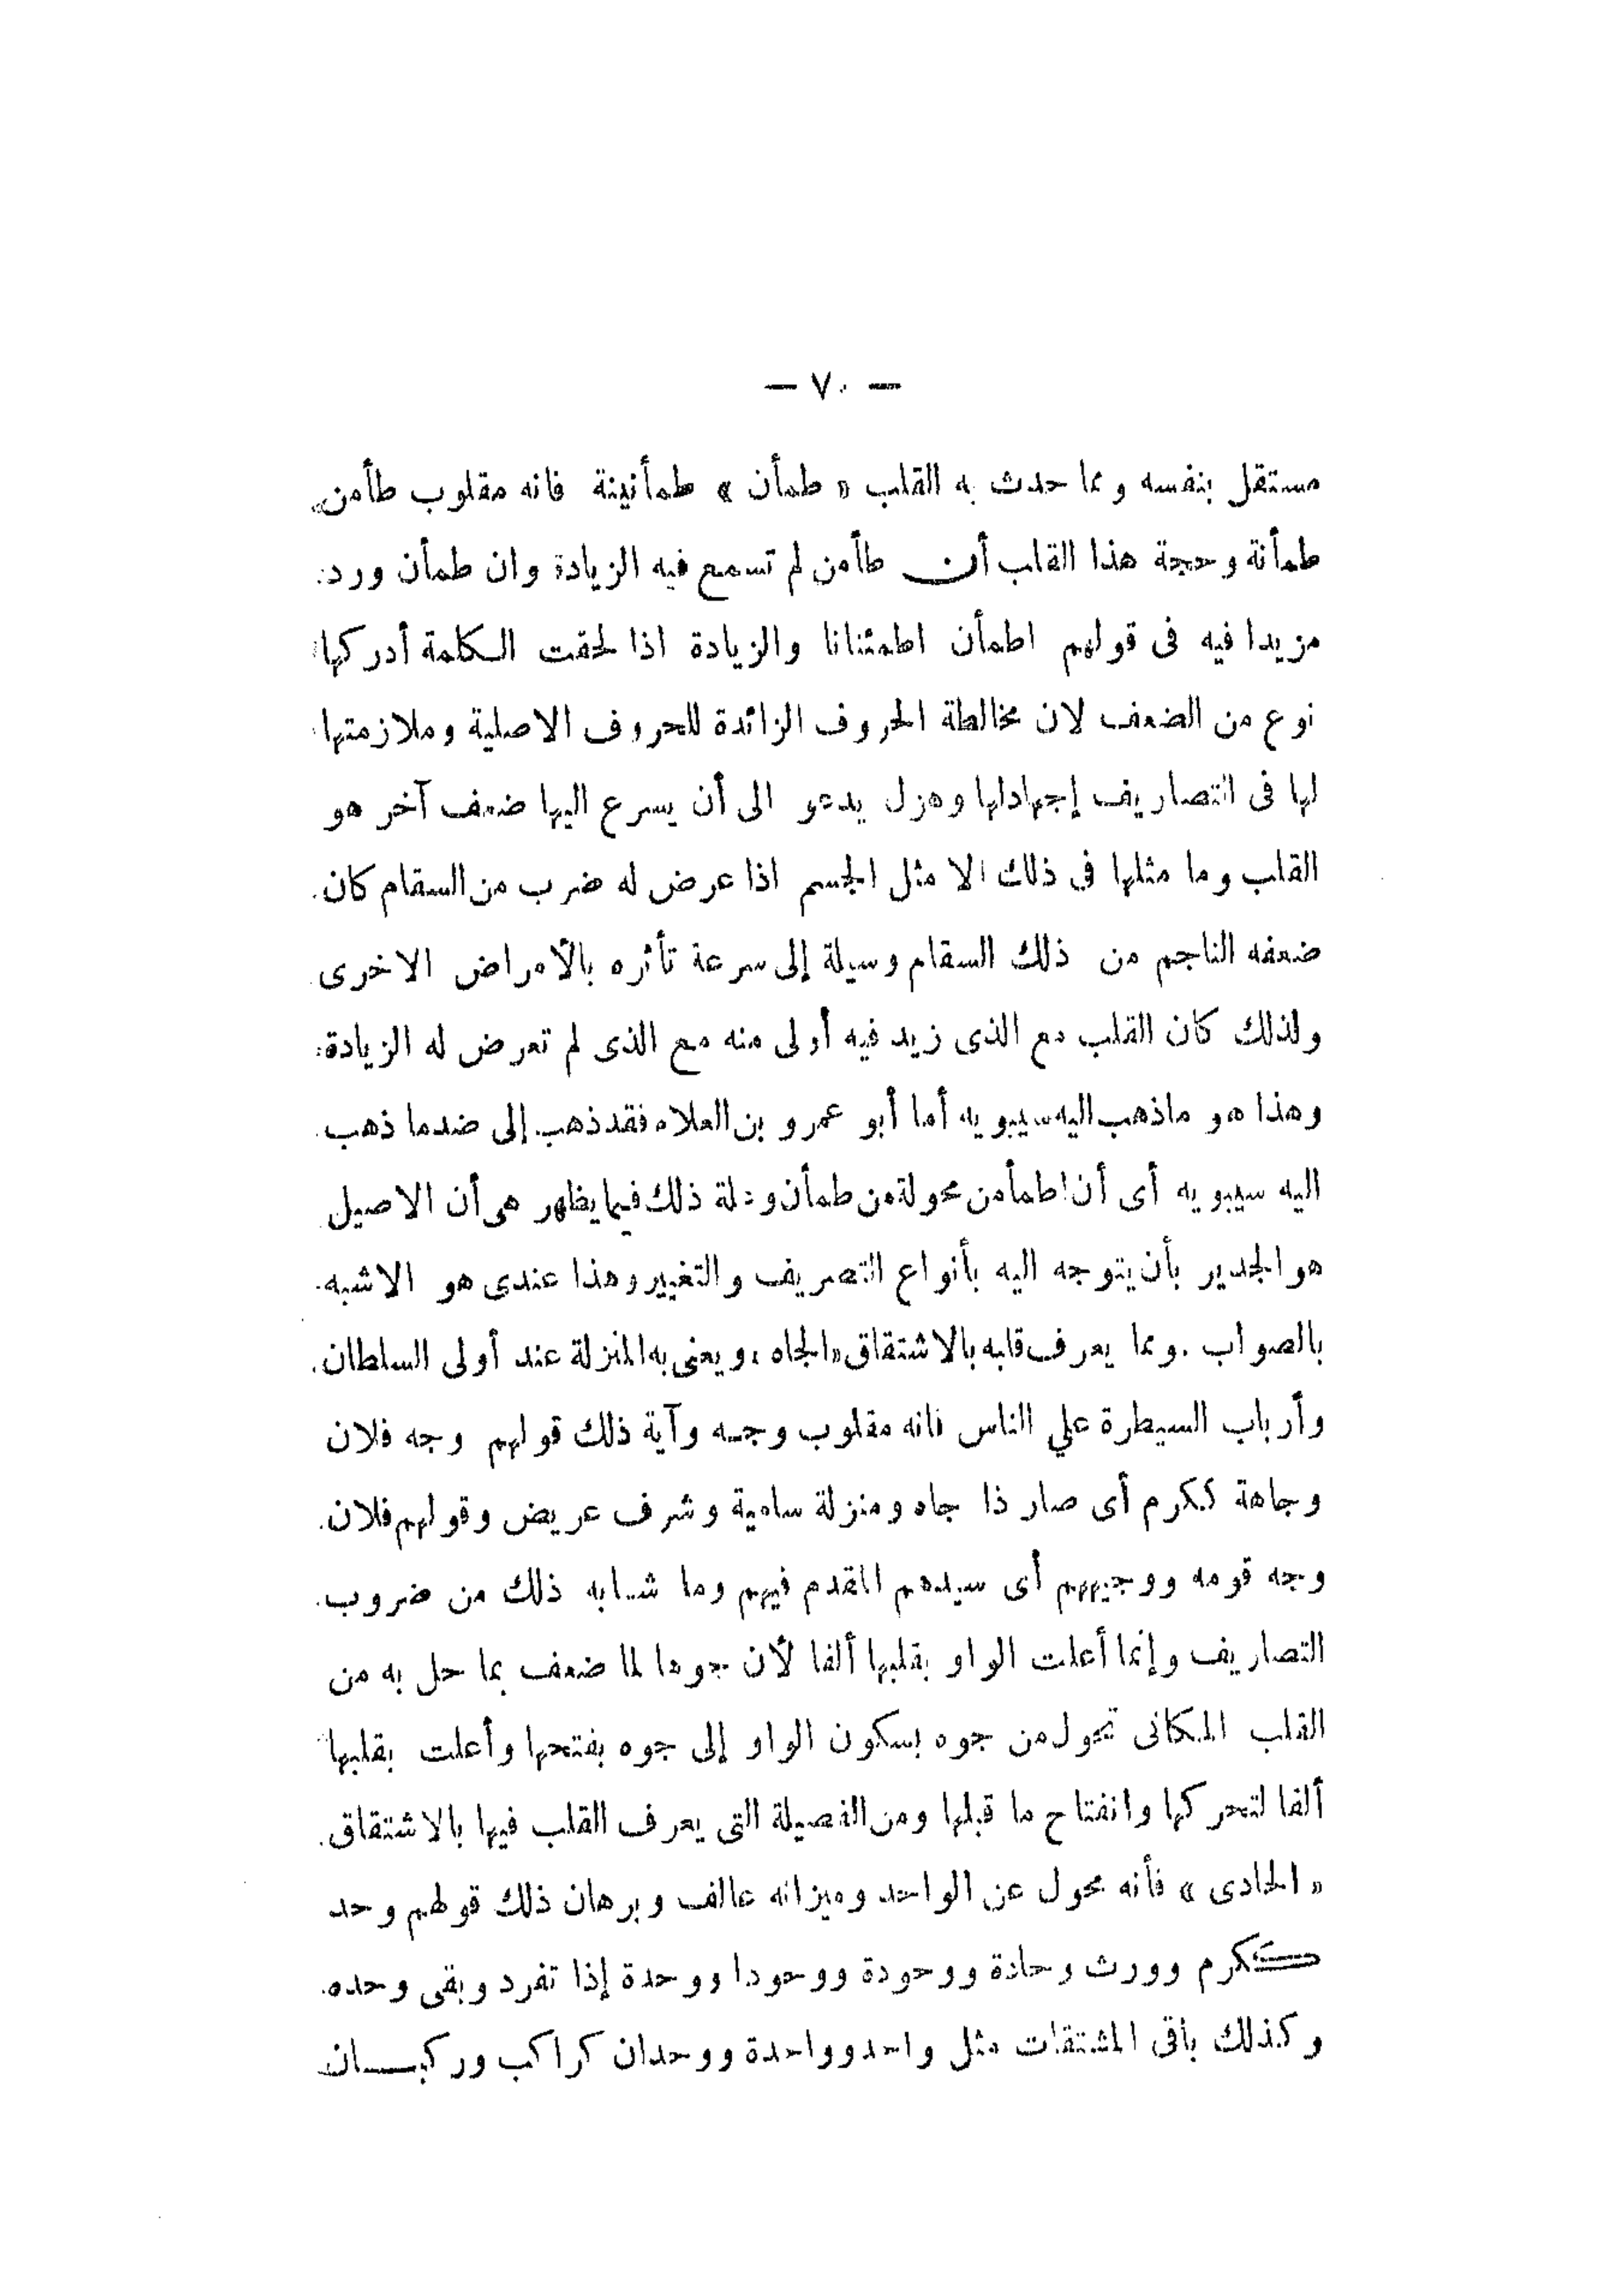 — ٧٠ —
مستقل بنفسه ومما حدث به القلب « طمأن » طمأنينة فانه مقلوب طأمن
طمأنة وحجة هذا القلب أن طأمن لم تسمع فيه الزيادة وان طمأن ورد
مزيدا فيه فى قولهم اطمأن اطمئنانا والزيادة اذا لحقت الكلمة أدركها
نوع من الضعف لان مخالطة الحروف الزائدة للحروف الاصلية وملازمتها
لها فى التصاريف إجهادلها وهزل يدعو الى أن يسرع اليها ضعف آخر هو
القلب وما مثلها فى ذلك الا مثل الجسم اذا عرض له ضرب من السقام كان
ضعفه الناجم من ذلك السقام وسيلة إلى سرعة تأثره بالأمراض الاخرى
ولذلك كان القلب مع الذى زيد فيه أولى منه مع الذى لم تعرض له الزيادة
وهذا هو ماذهب اليه سيبويه أما أبو عمرو بن العلاء فقد ذهب إلى ضدما ذهب
اليه سيبويه أى أن اطمأمن محولة من طمأن وعلة ذلك فيما يظهر هى أن الاصيل
هو الجدير بأن يتوجه اليه بأنواع التصريف والتغيير وهذا عندى هو الاشبه
بالصواب . ومما يعرف قلبه بالاشتقاق «الجاه» ويعنى به المنزلة عند أولى السلطان
وأرباب السيطرة علي الناس فانه مقلوب وجه وآية ذلك قولهم وجه فلان
وجاهة ككرم أى صار ذا جاه ومنزلة سامية وشرف عريض وقولهم فلان
وجه قومه ووجيههم أى سيدهم المقدم فيهم وما شابه ذلك من ضروب
التصاريف وإنما أعلت الواو بقلبها ألفا لأن جوها لما ضعف بما حل به من
القلب المكانى تحول من جوه بسكون الواو إلى جوه بفتحها وأعلت بقلبها
ألفا لتحركها وانفتاح ما قبلها ومن الفصيلة التى يعرف القلب فيها بالاشتقاق
« الحادى » فأنه محول عن الواحد وميزانه عالف وبرهان ذلك قولهم وحد
ككرم وورث وحادة ووحودة ووحودا ووحدة إذا تفرد وبقى وحده
وكذلك باقى المشتقات مثل واحد وواحدة ووحدان كراكب وركبان